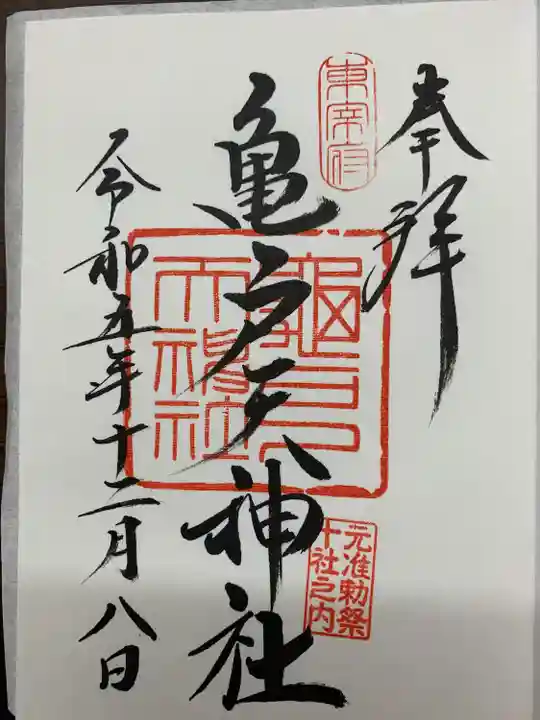 奉拝
東宰府
亀戸天神社
元准勅祭
十社之内
令和五年十二月八日